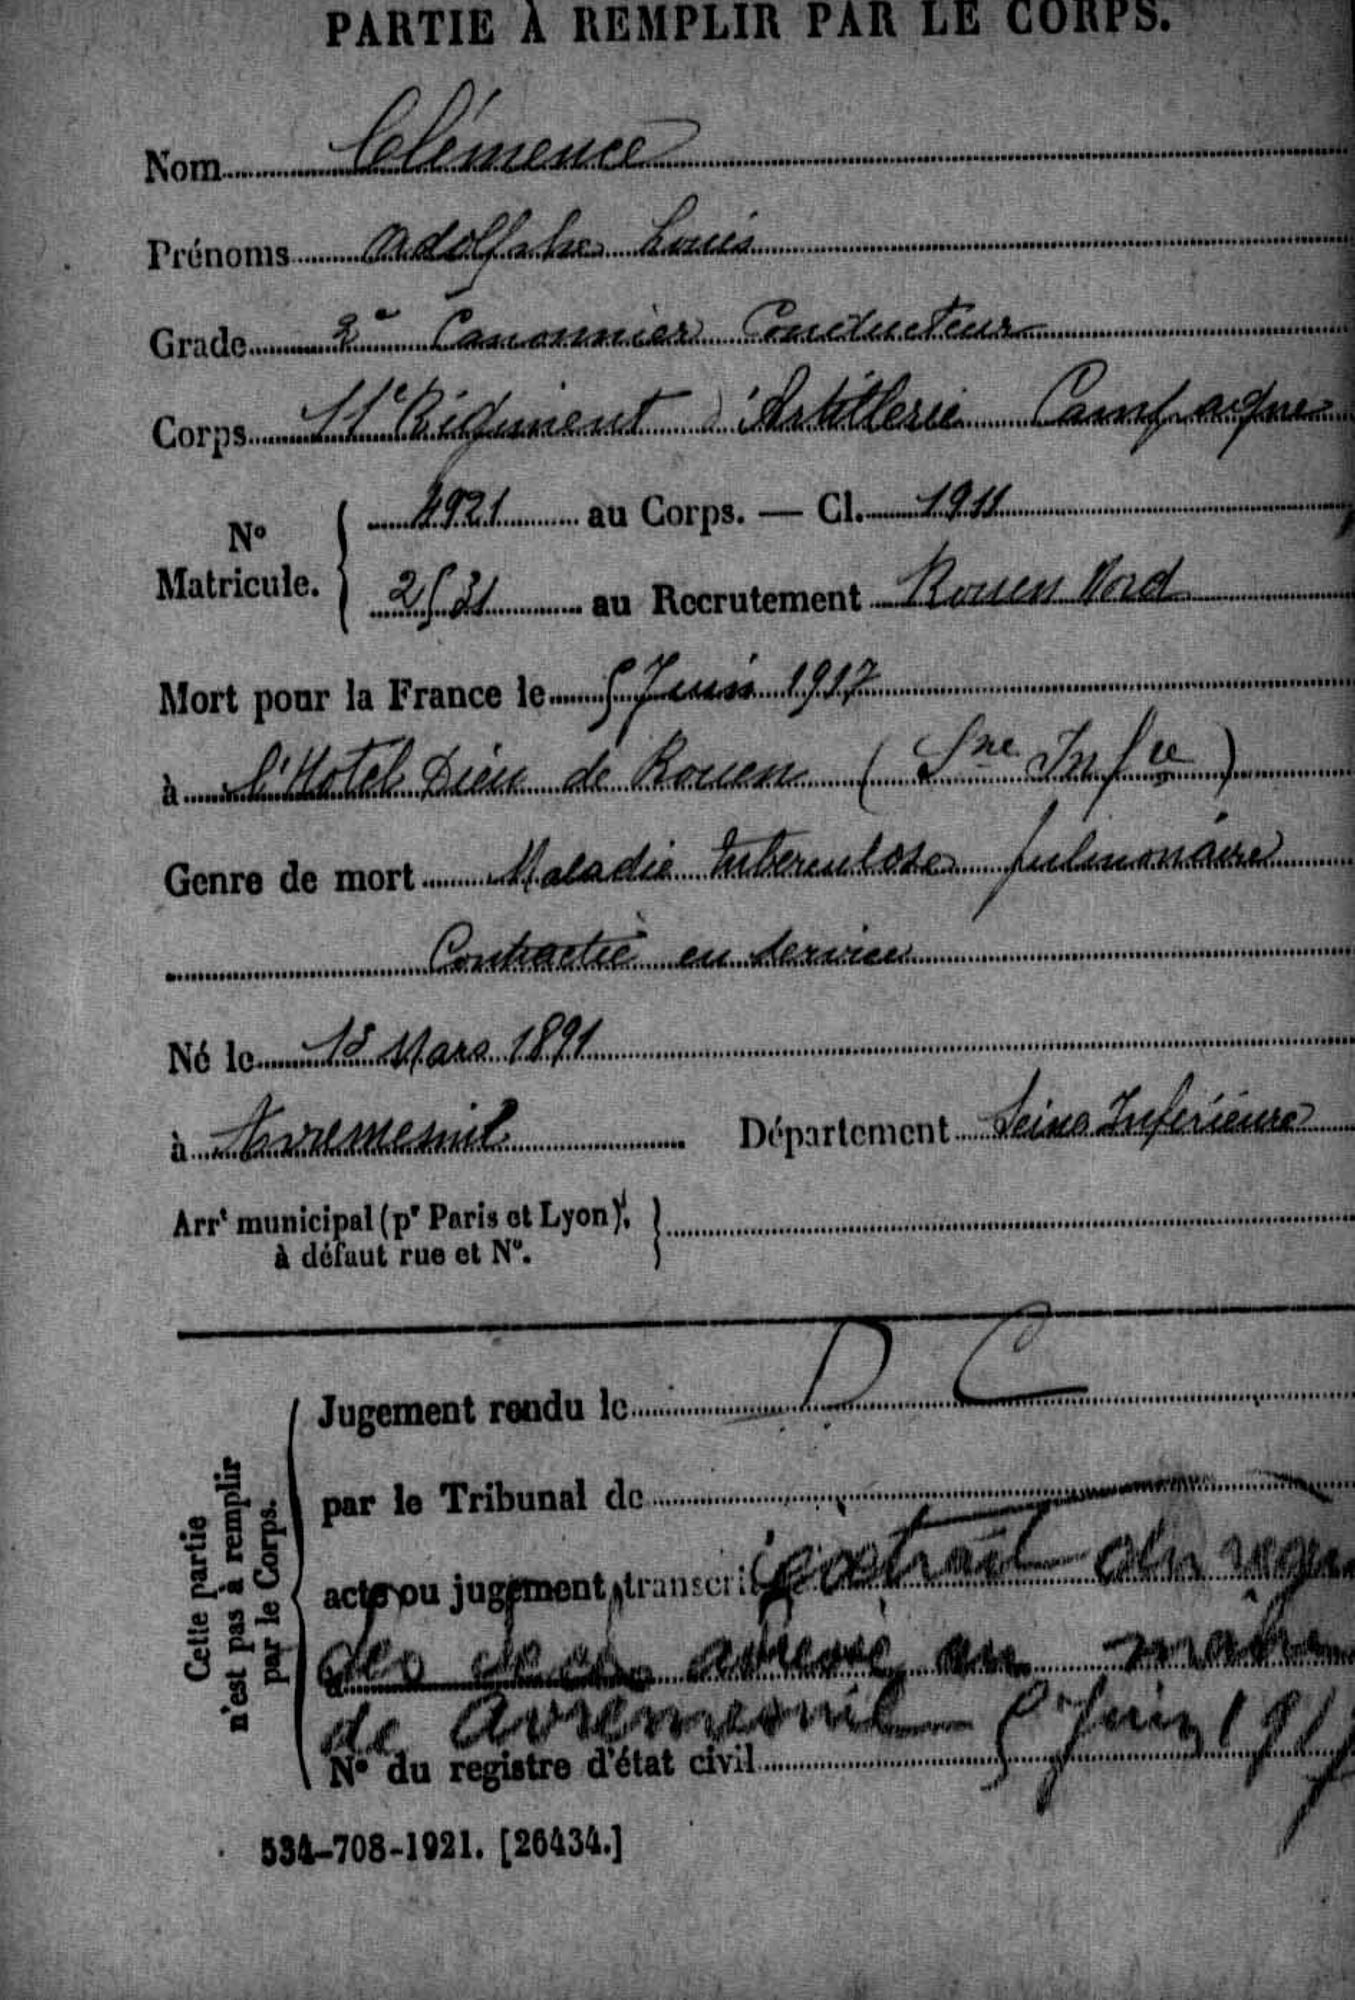 PARTIE À REMPLIR PAR LE CORPS.
Nom Clémence
Prénoms Adolphe Louis
Grade 2e Canonnier Conducteur
Corps 11e Régiment d'Artillerie Campagne
No Matricule. 4921 au Corps. — Cl. 1911
2531 au Recrutement Rouen Nord
Mort pour la France le 5 Juin 1917
à l'Hotel Dieu de Rouen (Sne Infre)
Genre de mort Maladie tuberculose pulmonaire
Contractée en service
Né le 15 Mars 1891
à Avremesnil Département Seine Inférieure
Arrt municipal (pr Paris et Lyon), à défaut rue et No.
D C
Cette partie n'est pas à remplir par le Corps.
Jugement rendu le
par le Tribunal de
acte ou jugement transcrit le extrait du
des adressé au
de Avremesnil 5 Juin 191
No du registre d'état civil
534-708-1921. [26434.]